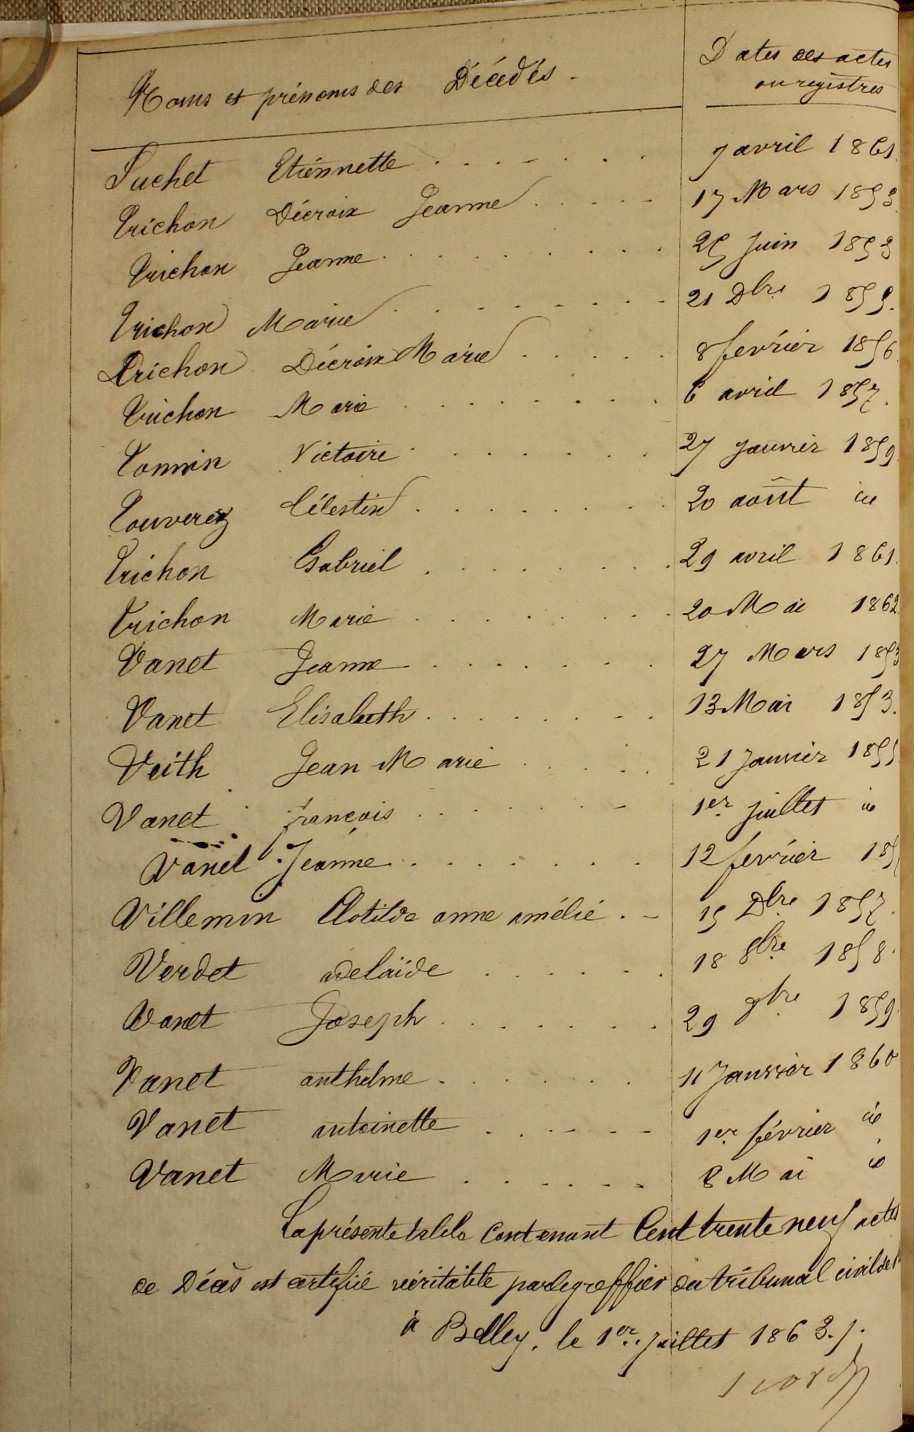 Noms et prénoms des Décédés.
Dates des actes
ou registres
Suchet Etiennette 7 avril 1861
Trichon Décroix Jeanne 17 Mars 1853
Trichon Jeanne 25 Juin 1853
Trichon Marie 21 Dbre 185
Trichon Décroix Marie 8 février 1856
Trichon Marie 6 avril 1857.
Tonnin Victoire 27 janvier 1859
Touverey Célestin 20 août id
Trichon Gabriel 29 avril 1861.
Trichon Marie 20 Mai 1862
Vanet Jeanne 27 Mars 1853
Vanet Elisabeth 13 Mai 1853.
Veith Jean Marie 21 Janvier 1855
Vanet françois 1er juillet id
Vanet Jeanne 12 février 185
Villemin Clotilde anne amélie 15 Dbre 1857.
Verdet adelaïde 18 8bre 1858.
Vanet Joseph 29 9bre 1859
Vanet anthelme 11 Janvier 1860
Vanet antoinette 1er février id
Vanet Marie 8 Mai id
La présente table contenant Cent trente neuf actes
de Décès est certifié véritable par le greffier du tribunal civil de
à Belley, le 1er. juillet 1863./.